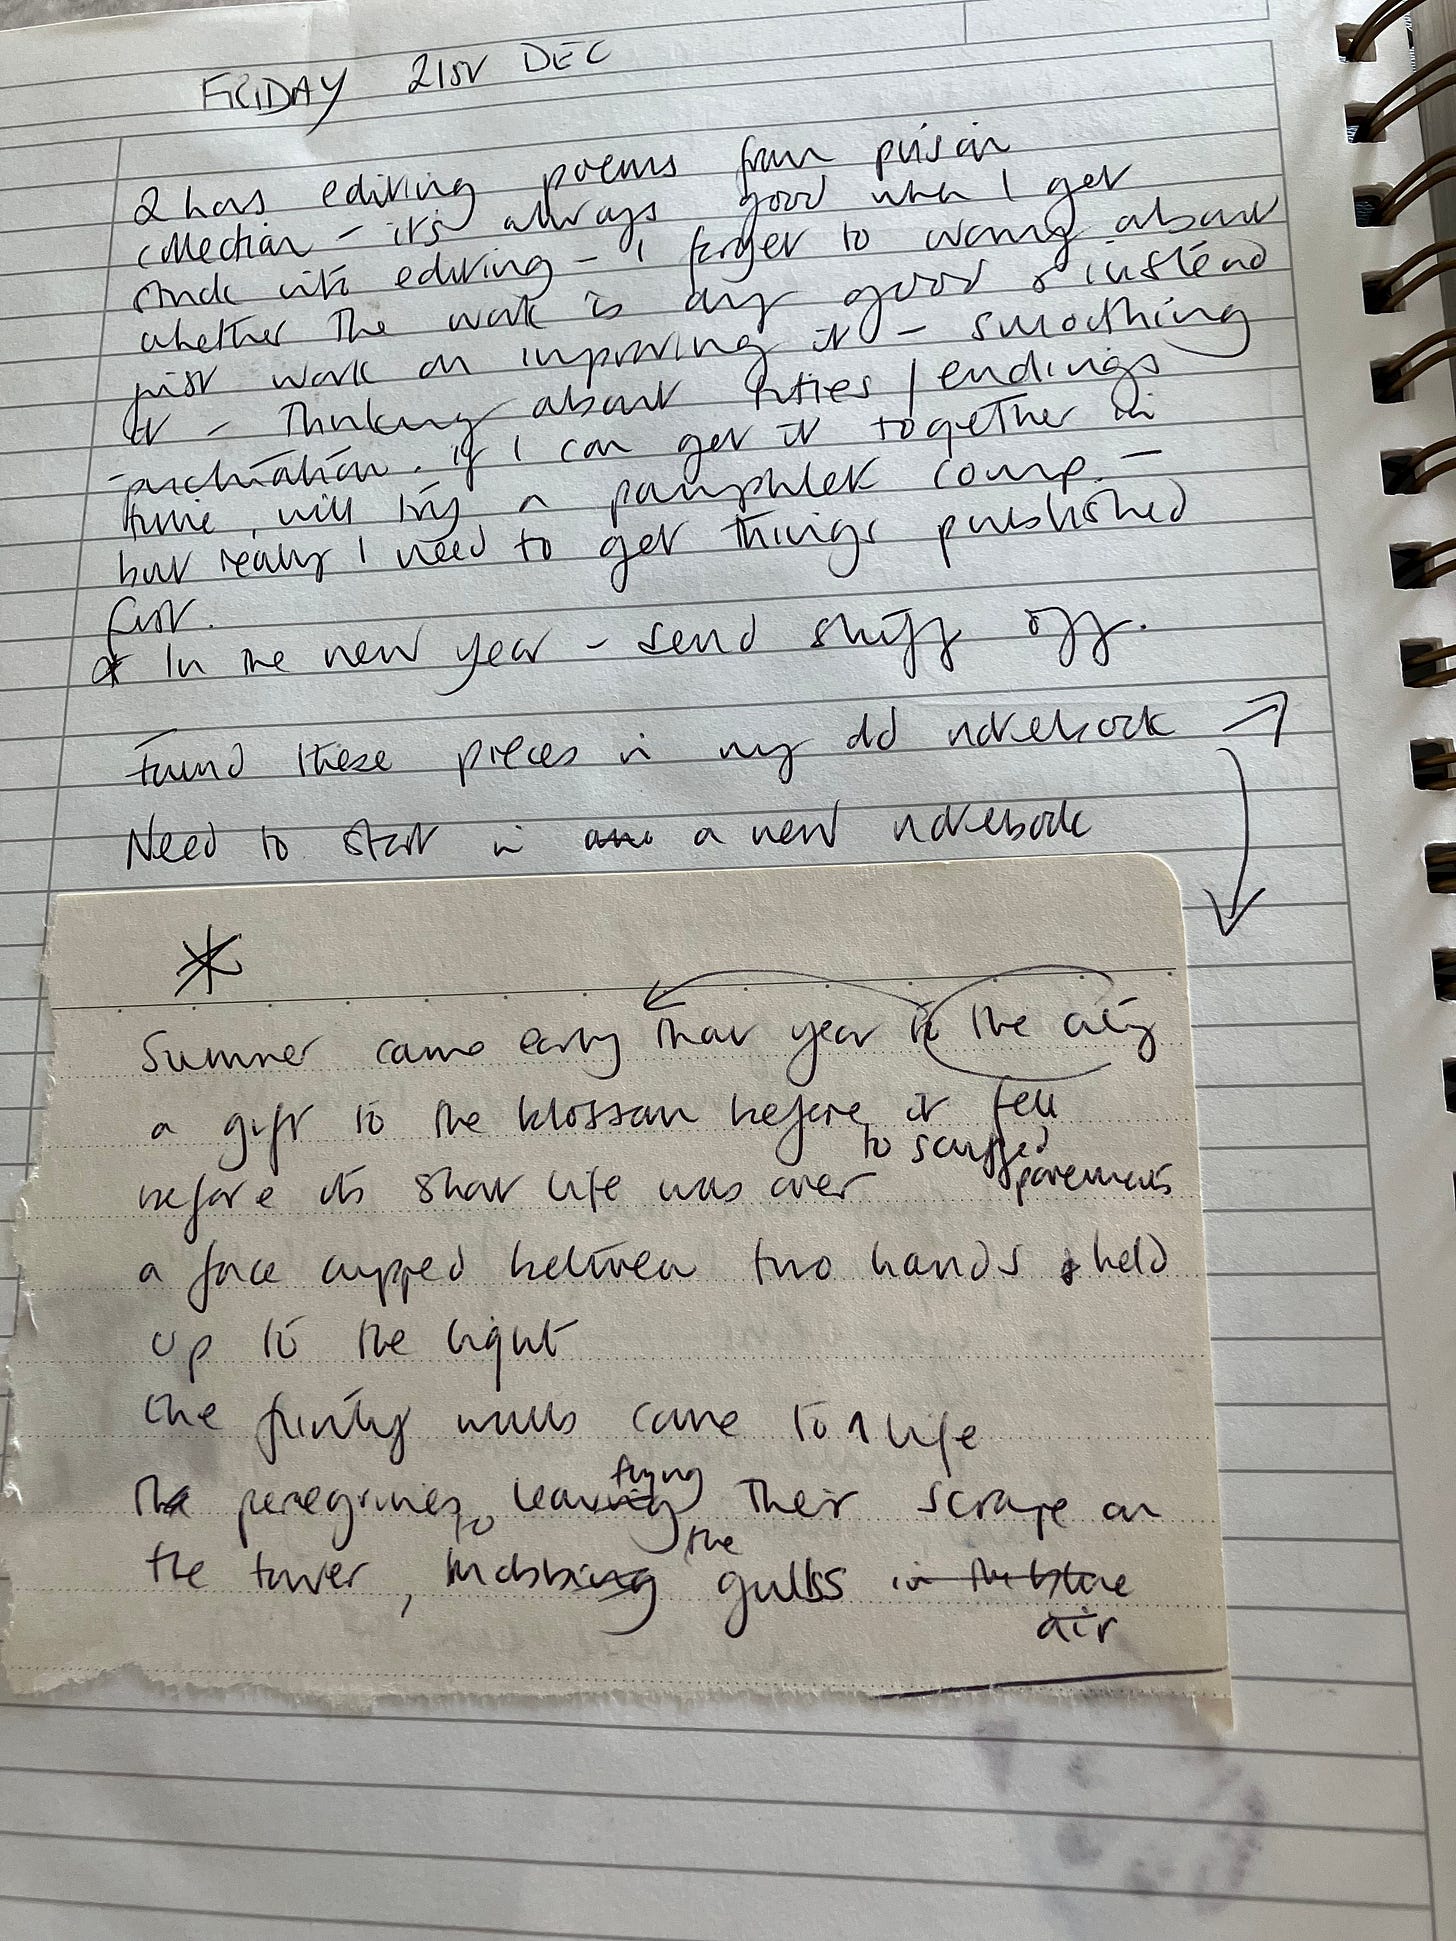 FRIDAY 21st DEC
2 hrs editing poems from prison
collection – it's always good when I get
stuck into editing – I forget to worry about
whether the work is any good & instead
just work on improving it – smoothing
it – thinking about titles / endings
punctuation. If I can get it together in
time, will try a pamphlet comp. –
but really I need to get things published
first.
* In the new year – send stuff off.
Found these pieces in my old notebook →
Need to start in a new notebook
*
Summer came early that year in the city
a gift to the blossom before it fell
to scuffed
before its short life was over pavements
a face cupped between two hands & held
up to the light
the flinty walls came to life
flying
The peregrines leaving their scrape on
to the
the tower, mobbing gulls in the blue
air